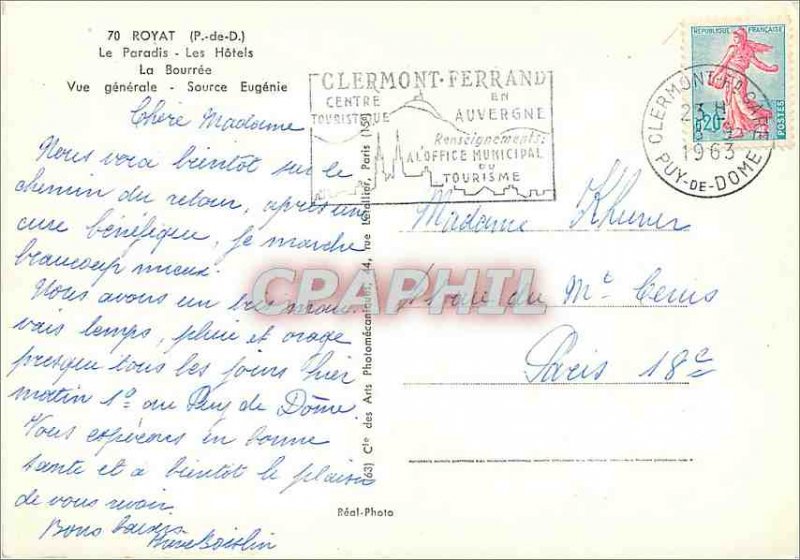 70 ROYAT (P.-de-D.)
Le Paradis - Les Hôtels
La Bourrée
Vue générale - Source Eugénie
Chère Madame
Nous vora bientot sur le
chemin du retour, apres une
cure bénéfique, je marche
beaucoup mieux.
Nous avons un tres mau
vais temps, pluie et orage
presque tous les jours hier
matin 1° au Puy de Dôme.
Vous esperons en bonne
sante et a bientot le plaisir
de vous revoir.
Bons baisers
(63) Cie des Arts Photomécaniques, 44, rue Letellier, Paris (15e)
Réal-Photo
CLERMONT-FERRAND
CENTRE
TOURISTIQUE
EN
AUVERGNE
Renseignements:
A L'OFFICE MUNICIPAL
DU
TOURISME
RÉPUBLIQUE FRANÇAISE
0,20
POSTES
CLERMONT-FD GARE
23 H
1963
PUY-DE-DOME
Madame
du Mt Cenis
Paris 18e
CPAPHIL